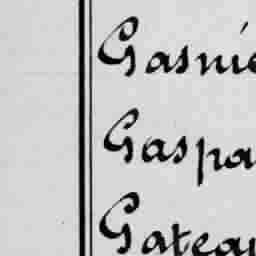 Gasnie
Gaspa
Gateau